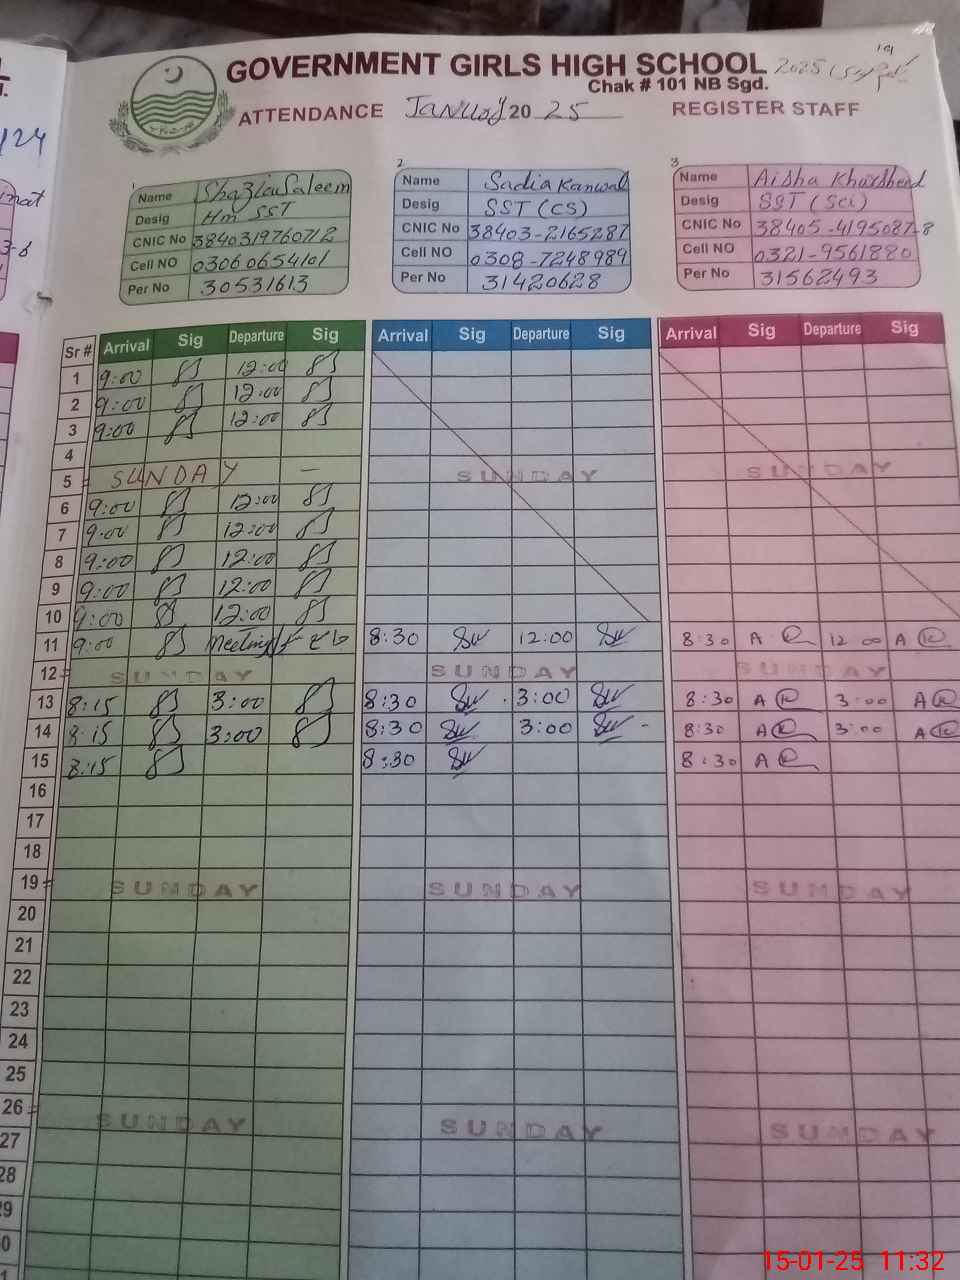 GOVERNMENT GIRLS HIGH SCHOOL 2025
Chak # 101 NB Sgd.
ATTENDANCE January 2025 REGISTER STAFF
1
Name Shazia Saleem
Desig Hm SST
CNIC No 3840319760712
Cell NO 03060654101
Per No 30531613
2
Name Sadia Kanwal
Desig SST (CS)
CNIC No 38403-2165287
Cell NO 0308-7248989
Per No 31420628
3
Name Aisha Khursheed
Desig SST (Sci)
CNIC No 38405-4195087-8
Cell NO 0321-9561880
Per No 31562493
Sr # Arrival Sig Departure Sig Arrival Sig Departure Sig Arrival Sig Departure Sig
1 9:00 12:00
2 9:00 12:00
3 9:00 12:00
4
5 SUNDAY — SUNDAY SUNDAY
6 9:00 12:00
7 9:00 12:00
8 9:00 12:00
9 9:00 12:00
10 9:00 12:00
11 9:00 Meeting 8:30 12:00 8:30 12 00
12 SUNDAY SUNDAY SUNDAY
13 8:15 3:00 8:30 3:00 8:30 3:00
14 8:15 3:00 8:30 3:00 8:30 3:00
15 8:15 8:30 8:30
16
17
18
19 SUNDAY SUNDAY SUNDAY
20
21
22
23
24
25
26 SUNDAY SUNDAY SUNDAY
27
28
29
0
15-01-25 11:32